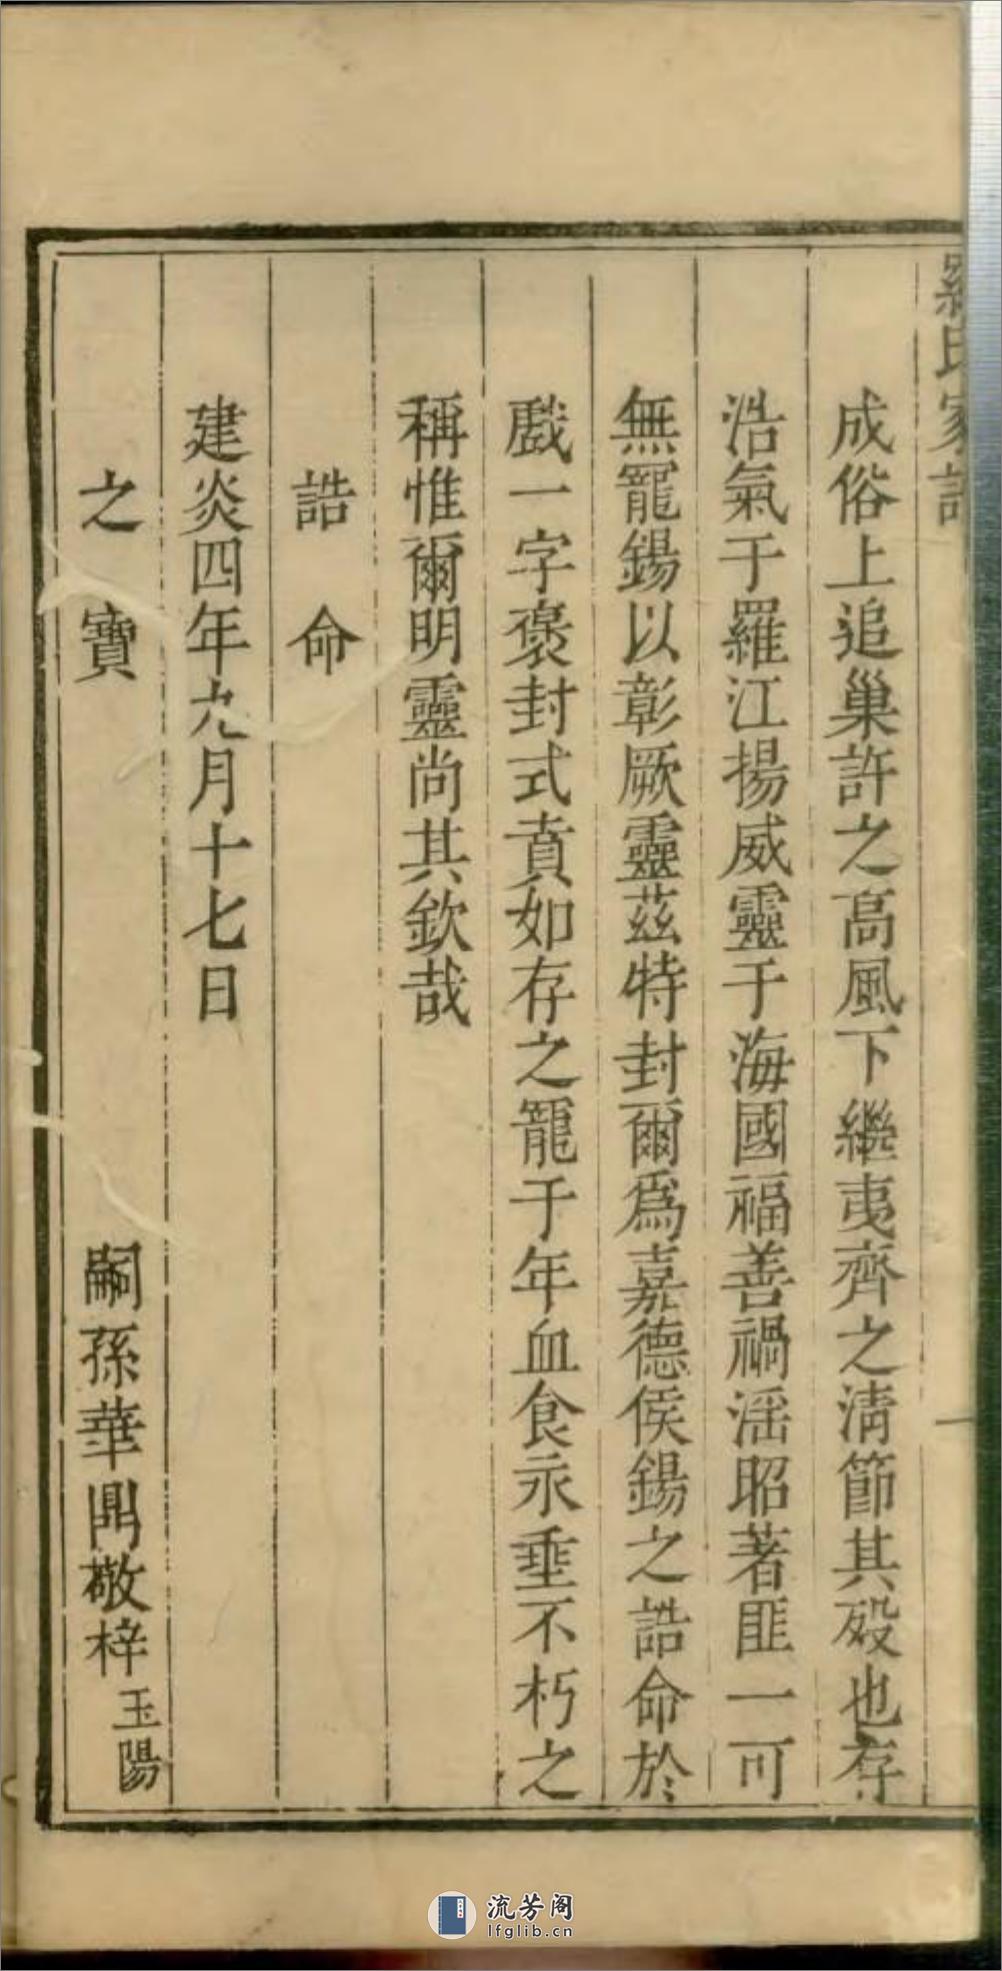 羅氏家譜
一
成俗上追巢許之高風下繼夷齊之清節其殁也存
浩氣于羅江揚威靈于海國福善禍滛昭著匪一可
無寵錫以彰厥靈茲特封爾為嘉德侯錫之誥命於
戲一字褒封式賁如存之寵于年血食永垂不朽之
稱惟爾明靈尚其欽哉
誥命
建炎四年九月十七日
之寶
嗣孫華鼎敬梓玉陽
流芳阁
lfglib.cn